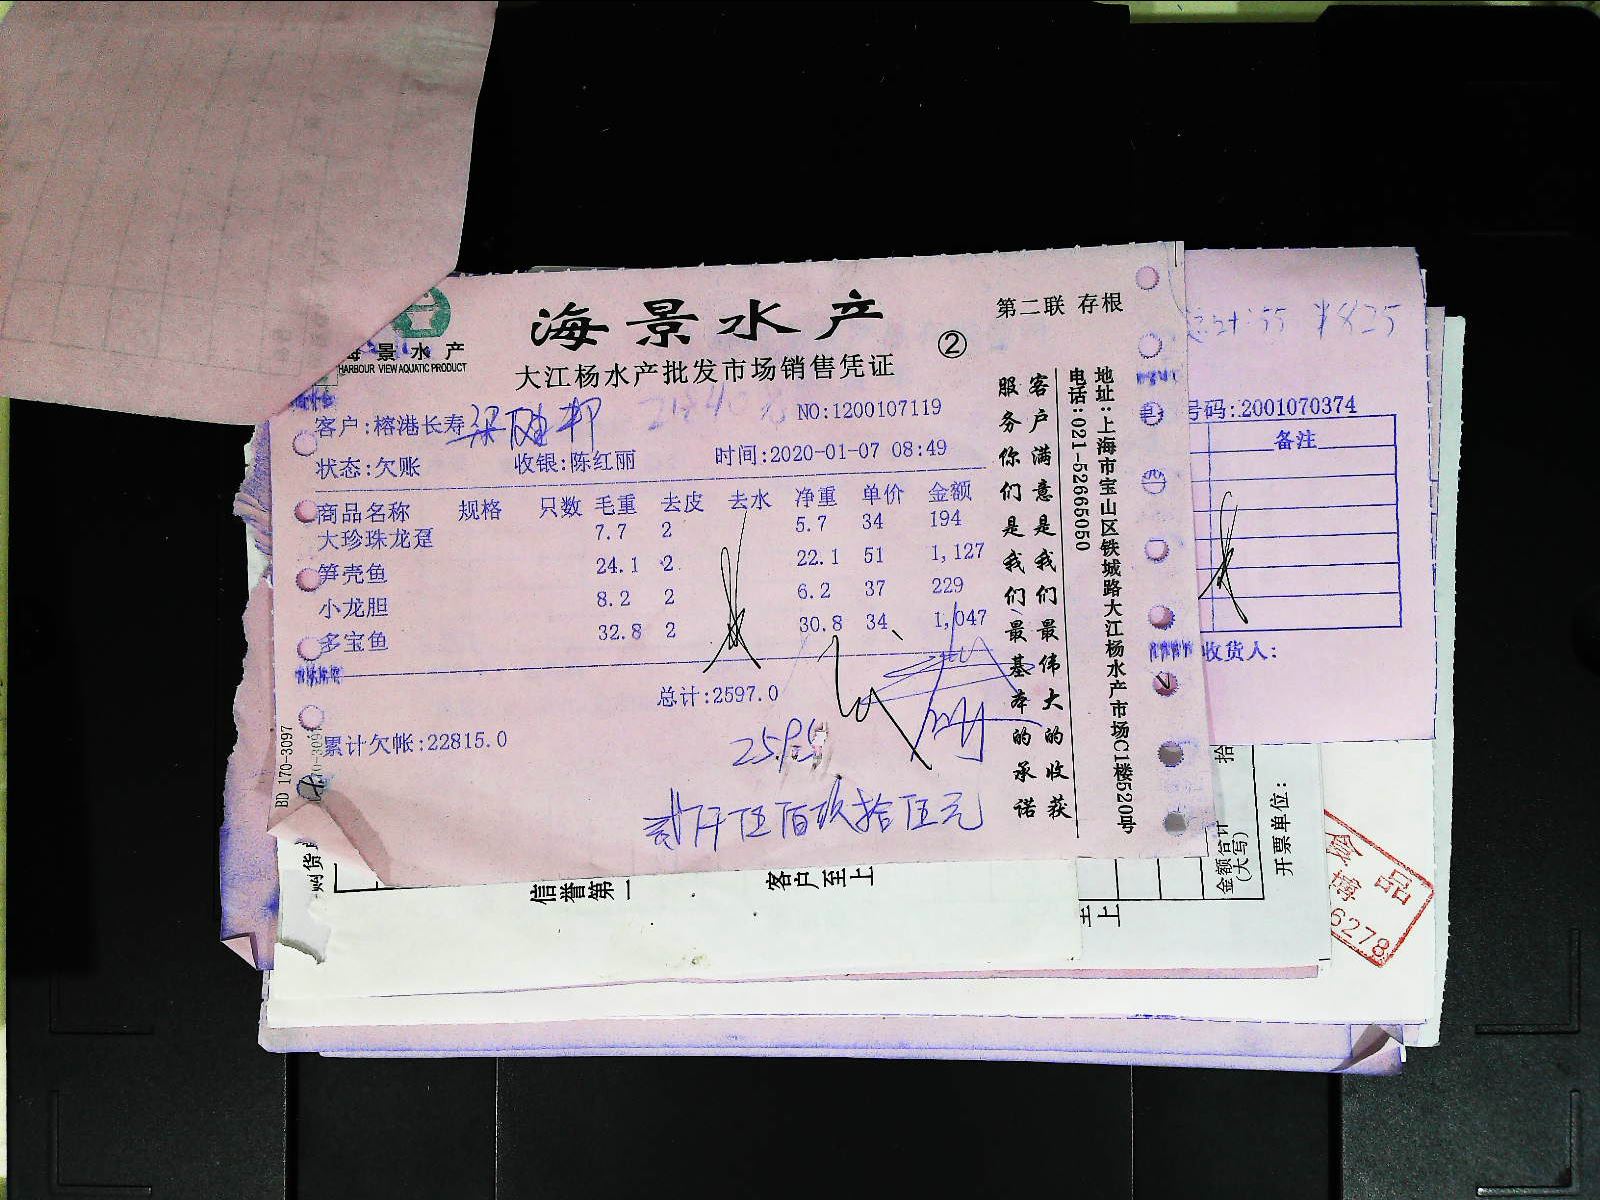 海景水产
HARBOUR VIEW AQUATIC PRODUCT
海景水产
大江杨水产批发市场销售凭证
②
第二联 存根
客户:榕港长寿
NO:1200107119
状态:欠账 收银:陈红丽 时间:2020-01-07 08:49
商品名称 规格 只数 毛重 去皮 去水 净重 单价 金额
大珍珠龙趸 7.7 2 5.7 34 194
笋壳鱼 24.1 2 22.1 51 1,127
小龙胆 8.2 2 6.2 37 229
多宝鱼 32.8 2 30.8 34 1,047
总计:2597.0
累计欠帐:22815.0
2595
贰仟伍佰玖拾伍元
客户满意是我们最伟大的收获
服务你们是我们最基本的承诺
地址:上海市宝山区铁城路大江杨水产市场C1楼520号
电话:021-52665050
BD 170-3097
号码:2001070374
备注
收货人:
信誉第一
客户至上
拾
金额合计
(大写)
开票单位:
品
6278